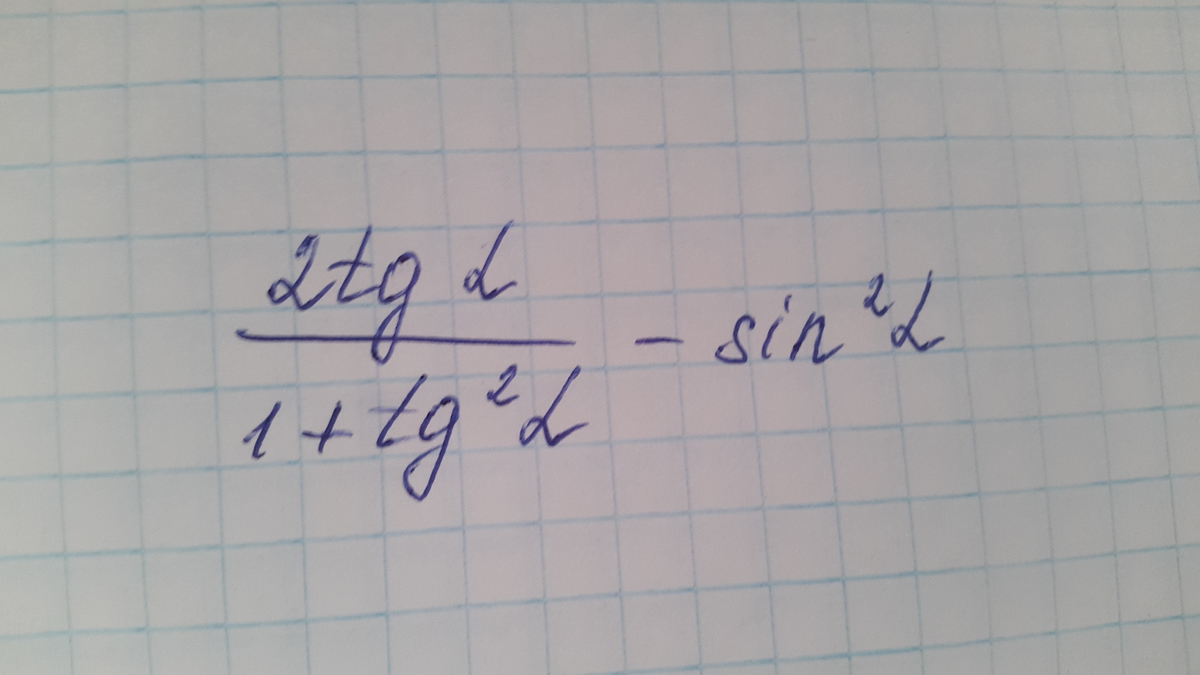 2tg α
1 + tg²α
− sin²α